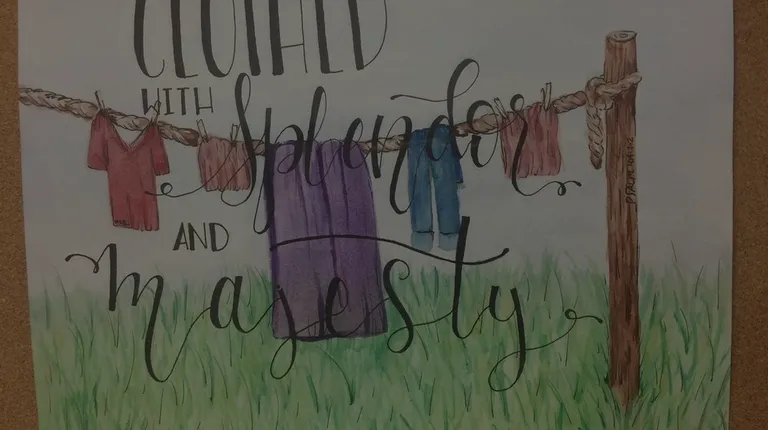 CLOTHED
WITH Splendor
AND
majesty